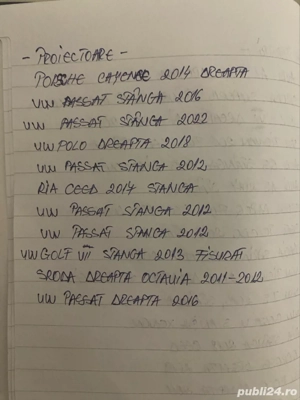 - PROIECTOARE -
PORSCHE CAYENNE 2014 DREAPTA
VW PASSAT STÂNGA 2016
VW PASSAT STÂNGA 2022
VW POLO DREAPTA 2018
VW PASSAT STÂNGA 2012
KIA CEED 2014 STANGA
VW PASSAT STÂNGA 2012
VW PASSAT STANGA 2012
VW GOLF VII STANGA 2013 FISURAT
SKODA DREAPTA OCTAVIA 2011-2012
VW PASSAT DREAPTA 2016
publi24.ro